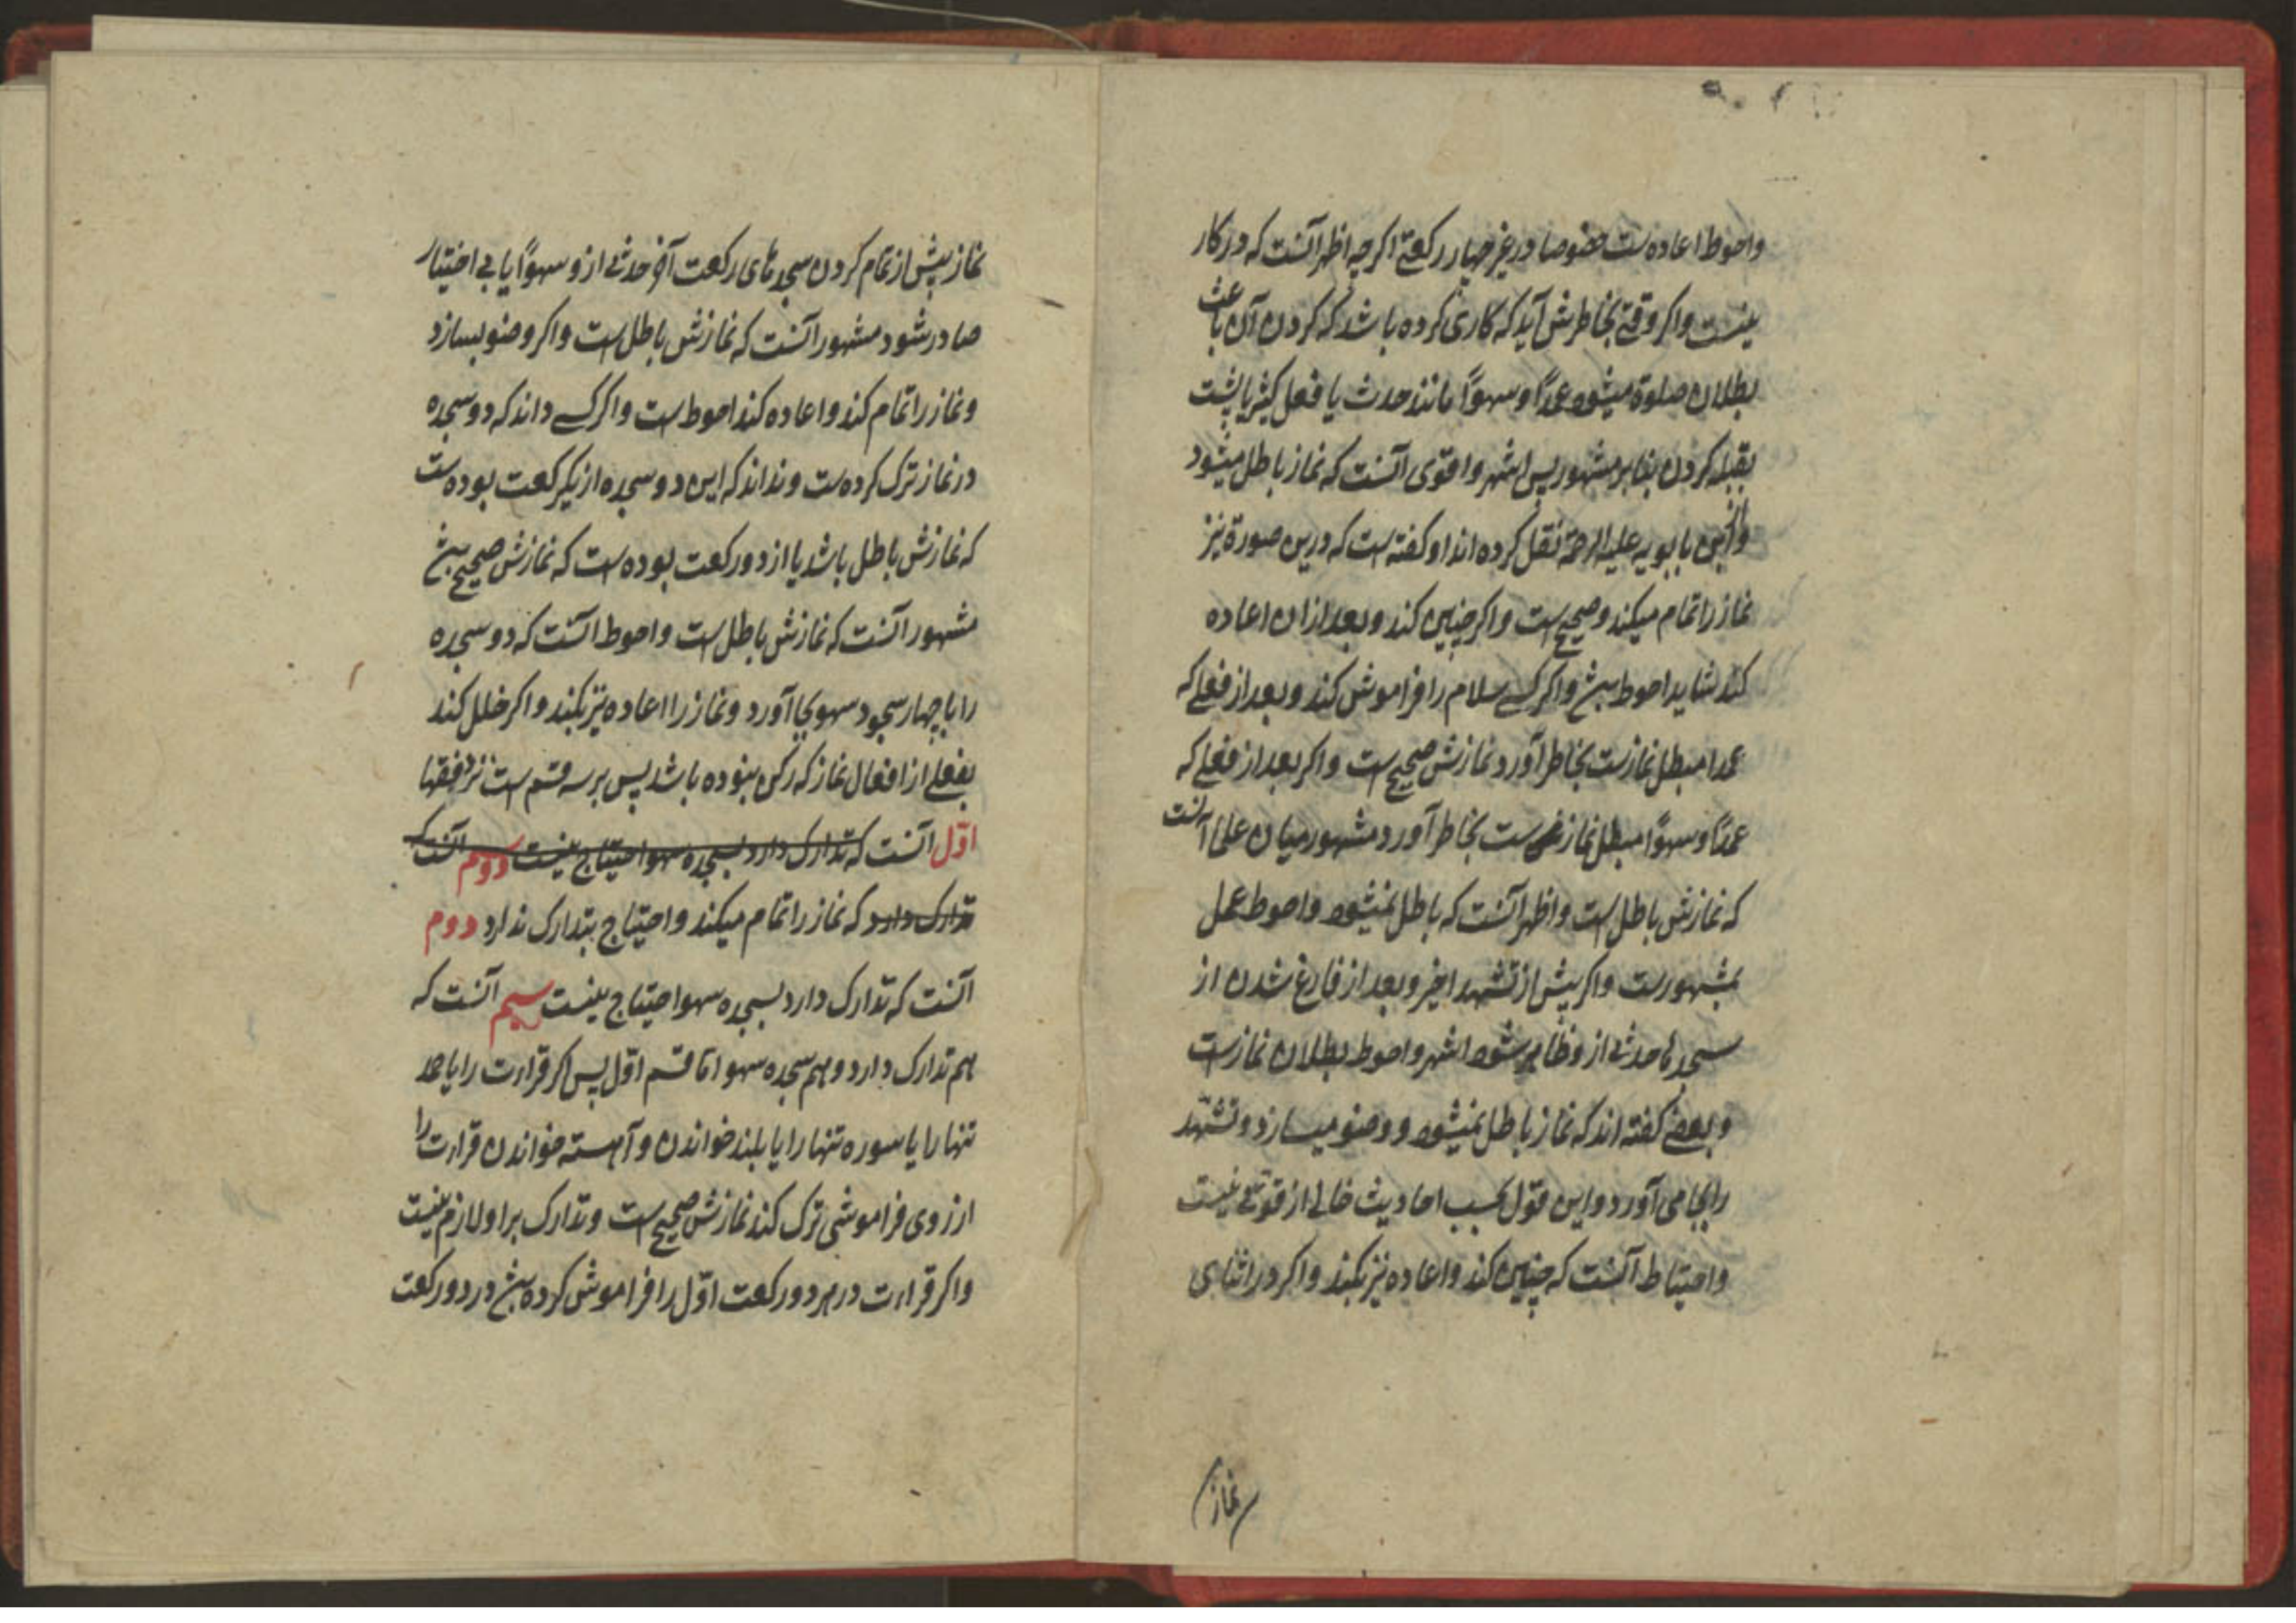 واحوط اعاده است خصوصا در غیر چهار رکعتی اکرچه اظهر آنست که در کار
نیست واکر وقتی بخاطرش آید که کاری کرده باشد که کردن آن باعث
بطلان صلوة میشود عمدًا و سهوًا مانند حدث یا فعل کثیر یا پشت
بقبله کردن بنابر مشهور پس اشهر واقوی آنست که نماز باطل میشود
وازابن بابویه علیه الرحمة نقل کرده اند او کفته است که درین صورة نیز
نماز را تمام میکند و صحیح است واکر چنین کند وبعد ازان اعاده
کند شاید احوط باشد واکر کسی سلام را فراموش کند وبعد از فعلی که
عمدا مبطل نمازست بخاطر آورد نمازش صحیح است واکر بعد از فعلی که
عمدًا و سهوًا مبطل نماز است بخاطر آورد مشهور میان علما آنست
که نمازش باطل است واظهر آنست که باطل نمیشود واحوط عمل
بمشهورست واکر پیش از تشهد اخیر وبعد از فارغ شدن از
سجدها حدثی ازو ظاهر شود اشهر واحوط بطلان نمازست
وبعضی کفته اند که نماز باطل نمیشود و وضو میسازد وتشهد
را بجا می آورد واین قول بحسب احادیث خالی از قوتی نیست
واحتیاط آنست که چنین کند واعاده نیز بکند واکر در اثنای
نماز
نماز پیش از تمام کردن سجدهای رکعت آخر حدثی ازو سهوًا یا بی اختیار
صادر شود مشهور آنست که نمازش باطل است واکر وضو بسازد
ونماز را تمام کند واعاده کند احوط است واکر کسی داند که دو سجده
در نماز ترک کرده است ونداند که این دو سجده از یکرکعت بوده است
که نمازش باطل باشد یا از دو رکعت بوده است که نمازش صحیح باشد
مشهور آنست که نمازش باطل است واحوط آنست که دو سجده
را با چهار سجود سهو بجا آورد ونماز را اعاده نیز بکند واکر خلل کند
بفعلی از افعال نماز که رکن نبوده باشد پس بر سه قسم است نزد فقها
اوّل آنست که تدارک دارد بسجده سهو احتیاج نیست دوم آنست که
تدارک دارد که نماز را تمام میکند واحتیاج بتدارک ندارد دوم
آنست که تدارک دارد بسجده سهو احتیاج نیست سیم آنست که
هم تدارک دارد وهم سجده سهو اما قسم اوّل پس اکر قراءت را یا حمد
تنها را یا سوره تنها را یا بلند خواندن وآهسته خواندن قراءت را
از روی فراموشی ترک کند نمازش صحیح است وتدارک بر او لازم نیست
واکر قراءت در هر دو رکعت اوّل را فراموش کرده باشد در دو رکعت